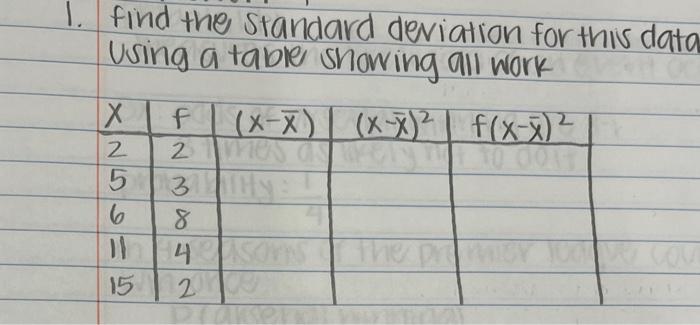 1. find the standard deviation for this data
using a table showing all work
x f (x-x̄) (x-x̄)² f(x-x̄)²
2 2
5 3
6 8
11 4
15 2